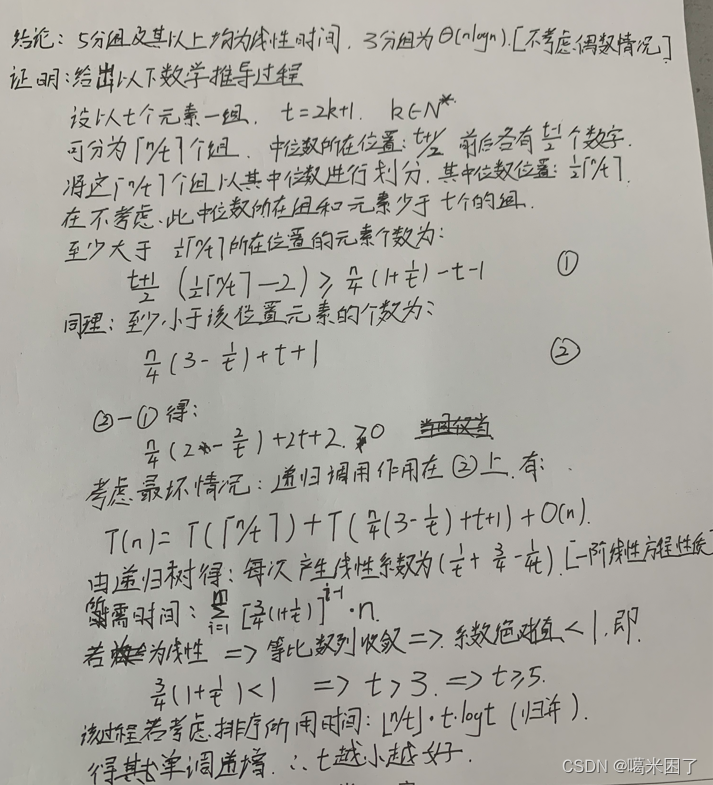 结论: 5分组及其以上均为线性时间, 3分组为Θ(nlogn).[不考虑偶数情况]
证明:给出以下数学推导过程
设以t个元素一组, t=2k+1, k∈N*.
可分为⌈n/t⌉个组, 中位数所在位置: (t+1)/2 前后各有(t-1)/2个数字.
将这⌈n/t⌉个组以其中位数进行划分, 其中位数位置: 1/2⌈n/t⌉.
在不考虑此中位数所在组和元素少于t个的组.
至少大于 1/2⌈n/t⌉所在位置的元素个数为:
(t+1)/2 (1/2⌈n/t⌉-2) ≥ n/4(1+1/t)-t-1 ①
同理: 至少小于该位置元素的个数为:
n/4(3-1/t)+t+1 ②
②-①得:
n/4(2-2/t)+2t+2 ≥0
考虑最坏情况: 递归调用作用在②上, 有:
T(n)=T(⌈n/t⌉)+T(n/4(3-1/t)+t+1)+O(n).
由递归树得: 每次产生线性系数为(1/t+3/4-1/4t).[一阶线性方程性质
所需时间: Σ i=1 n [3/4(1+1/t)]^(i-1)·n.
若为线性 => 等比数列收敛 => 系数绝对值<1, 即
3/4(1+1/t)<1 => t>3. => t≥5.
该过程若考虑排序所用时间: ⌊n/t⌋·t·logt (归并).
得其单调递增, ∴t越小越好.
CSDN @噶米困了